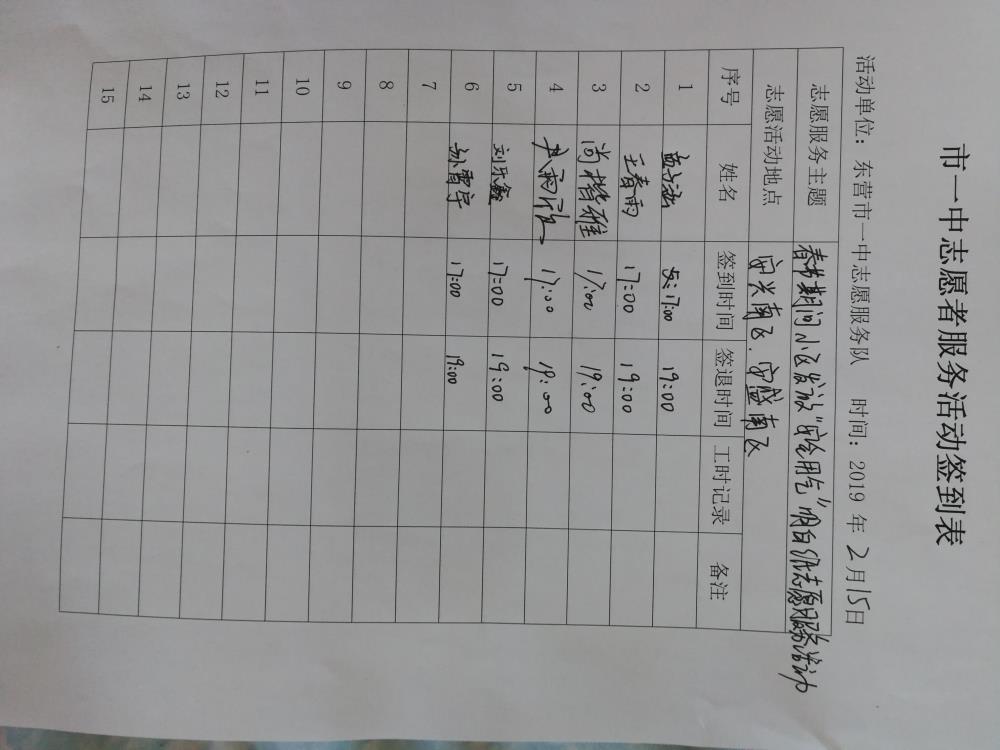 市一中志愿者服务活动签到表
活动单位：东营市一中志愿服务队 时间：2019 年 2月15日
志愿服务主题 春节期间小区发放“安全用气”明白纸志愿服务活动
志愿活动地点 安兴南区、安盛南区
序号 姓名 签到时间 签退时间 工时记录 备注
1 17:00 19:00
2 王春雨 17:00 19:00
3 尚楷雅 17:00 19:00
4 尹雨欣 17:00 19:00
5 刘乐鑫 17:00 19:00
6 孙雪宇 17:00 19:00
7
8
9
10
11
12
13
14
15